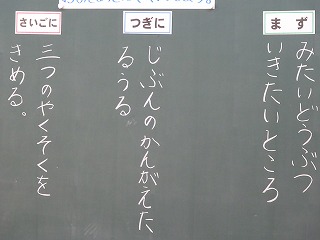 まず
みたいどうぶつ
いきたいところ
つぎに
じぶんのかんがえた
るうる
さいごに
三つのやくそくを
きめる。